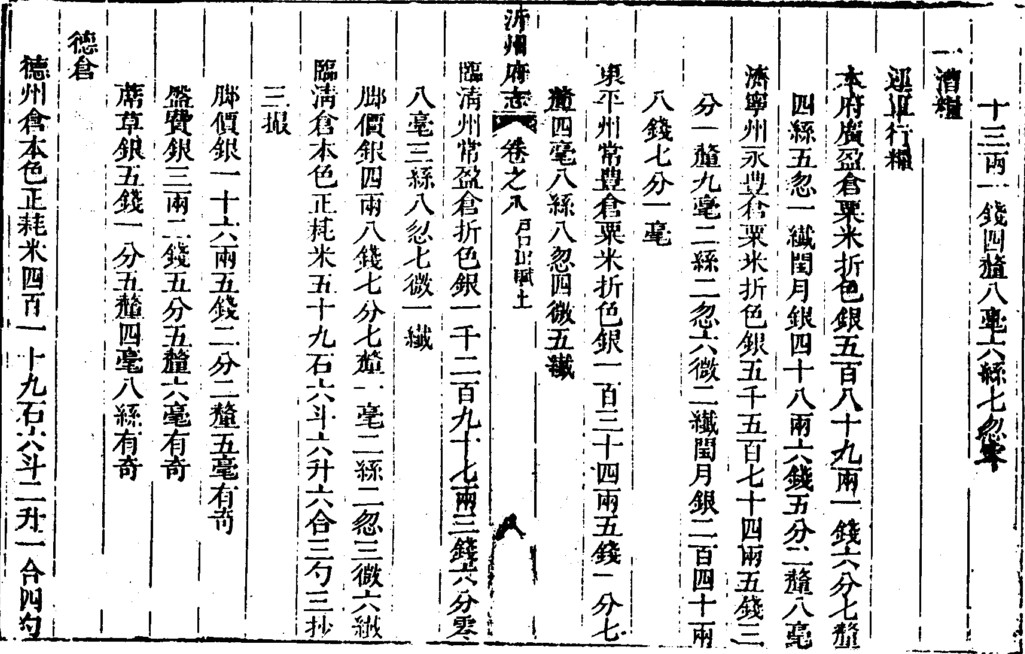 十三兩一錢四釐八毫六絲七忽零
一漕糧
運軍行糧
本府廣盈倉粟米折色銀五百八十九兩一錢六分七釐
四絲五忽一纖閏月銀四十八兩六錢五分二釐八毫
濟寧州永豊倉粟米折色銀五千五百七十四兩五錢三
分一釐九毫二絲二忽六微二纖閏月銀二百四十兩
八錢七分一毫
東平州常豊倉粟米折色銀一百三十四兩五錢一分七
釐四毫八絲八忽四微五纖
沂州府志 卷之八 田賦 八
臨清州常盈倉折色銀一千二百九十七兩三錢六分零
八毫三絲八忽七微一纖
脚價銀四兩八錢七分七釐一毫二絲二忽三微六纖
臨清倉本色正耗米五十九石六斗六升六合三勺三抄
三撮
脚價銀一十六兩五錢二分二釐五毫有奇
盤費銀三兩二錢五分五釐六毫有奇
蓆草銀五錢一分五釐四毫八絲有奇
德倉
德州倉本色正耗米四百一十九石六斗二升一合四勺